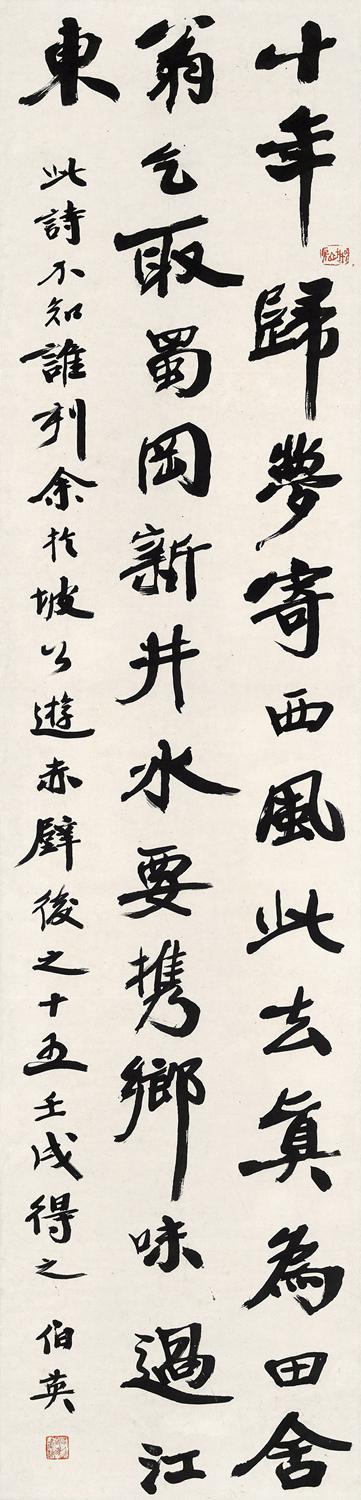 十年歸夢寄西風此去眞為田舍
翁乞取蜀岡新井水要携鄉味過江
東
此詩不知誰余於坡公遊赤壁後之十五壬戌得之 伯英